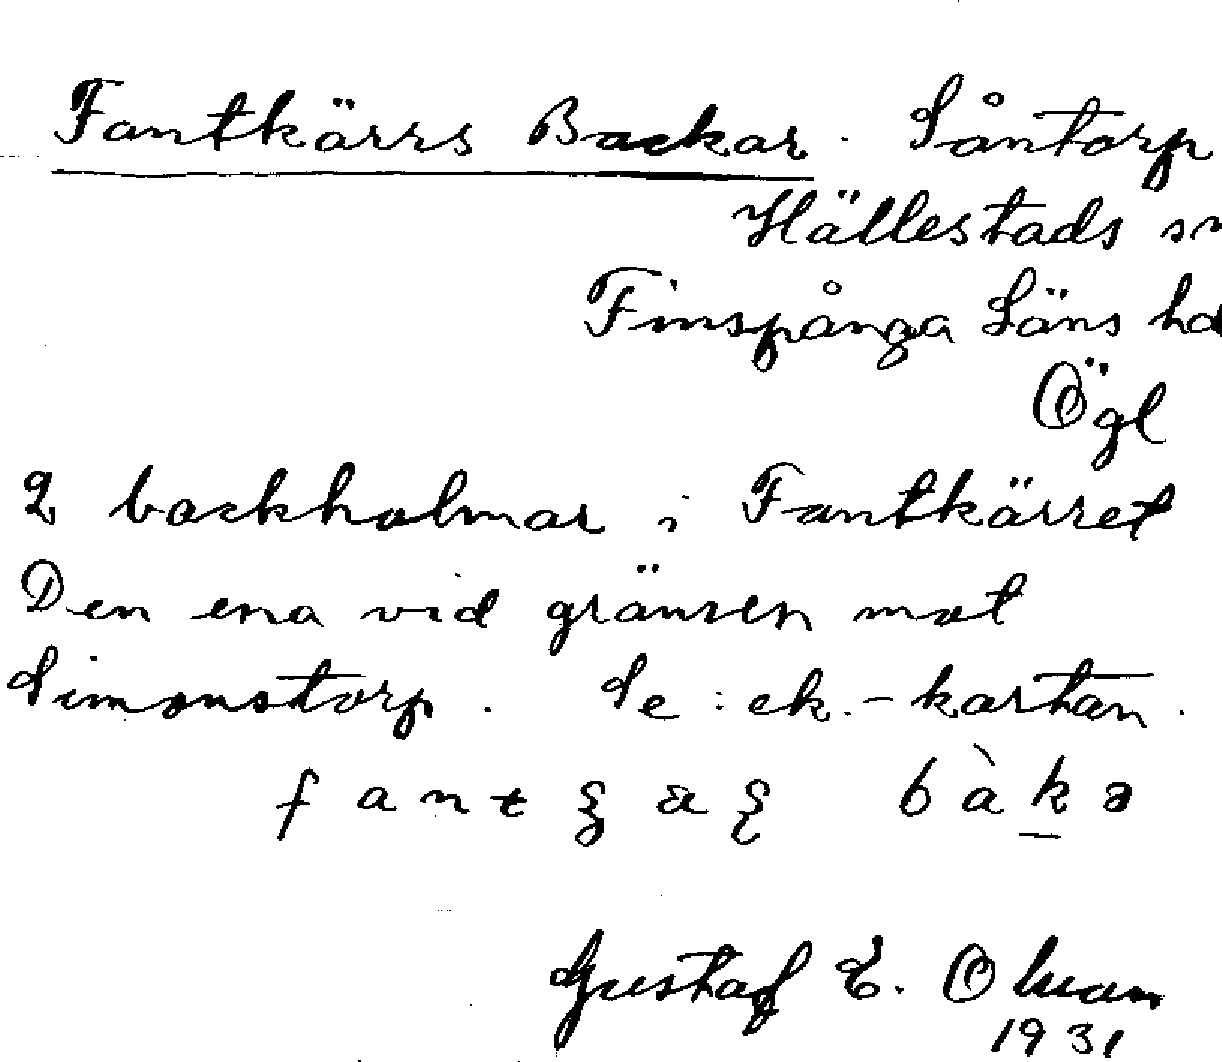 Fantkärrs Backar. Såntorp
Hällestads sn
Finspånga Läns hd
Ögl
2 backholmar i Fantkärret
Den ena vid gränsen mot
Simonstorp. Se: ek.-kartan.
Gustaf E.
1931